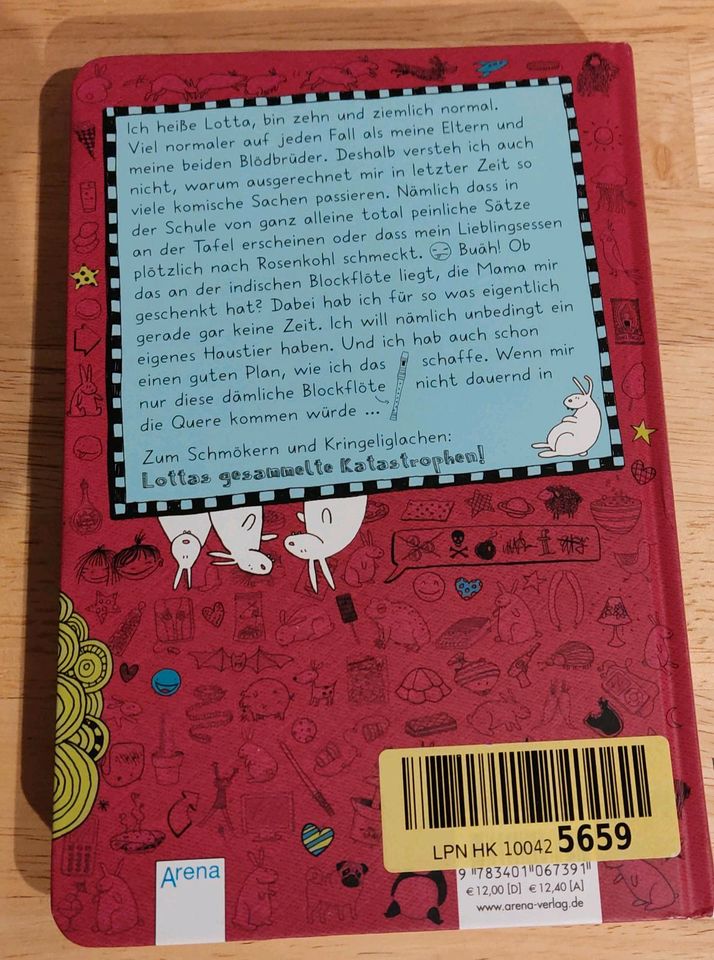 Ich heiße Lotta, bin zehn und ziemlich normal.
Viel normaler auf jeden Fall als meine Eltern und
meine beiden Blödbrüder. Deshalb versteh ich auch
nicht, warum ausgerechnet mir in letzter Zeit so
viele komische Sachen passieren. Nämlich dass in
der Schule von ganz alleine total peinliche Sätze
an der Tafel erscheinen oder dass mein Lieblingsessen
plötzlich nach Rosenkohl schmeckt. Buäh! Ob
das an der indischen Blockflöte liegt, die Mama mir
geschenkt hat? Dabei hab ich für so was eigentlich
gerade gar keine Zeit. Ich will nämlich unbedingt ein
eigenes Haustier haben. Und ich hab auch schon
einen guten Plan, wie ich das schaffe. Wenn mir
nur diese dämliche Blockflöte nicht dauernd in
die Quere kommen würde ...
Zum Schmökern und Kringeliglachen:
Lottas gesammelte Katastrophen!
LPN HK 10042 5659
Arena
9 783401 067391
€ 12,00 [D] € 12,40 [A]
www.arena-verlag.de